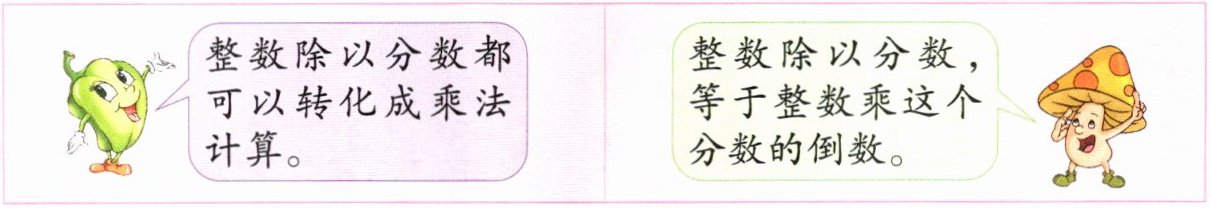 整数除以分数都
可以转化成乘法
计算。
整数除以分数，
等于整数乘这个
分数的倒数。